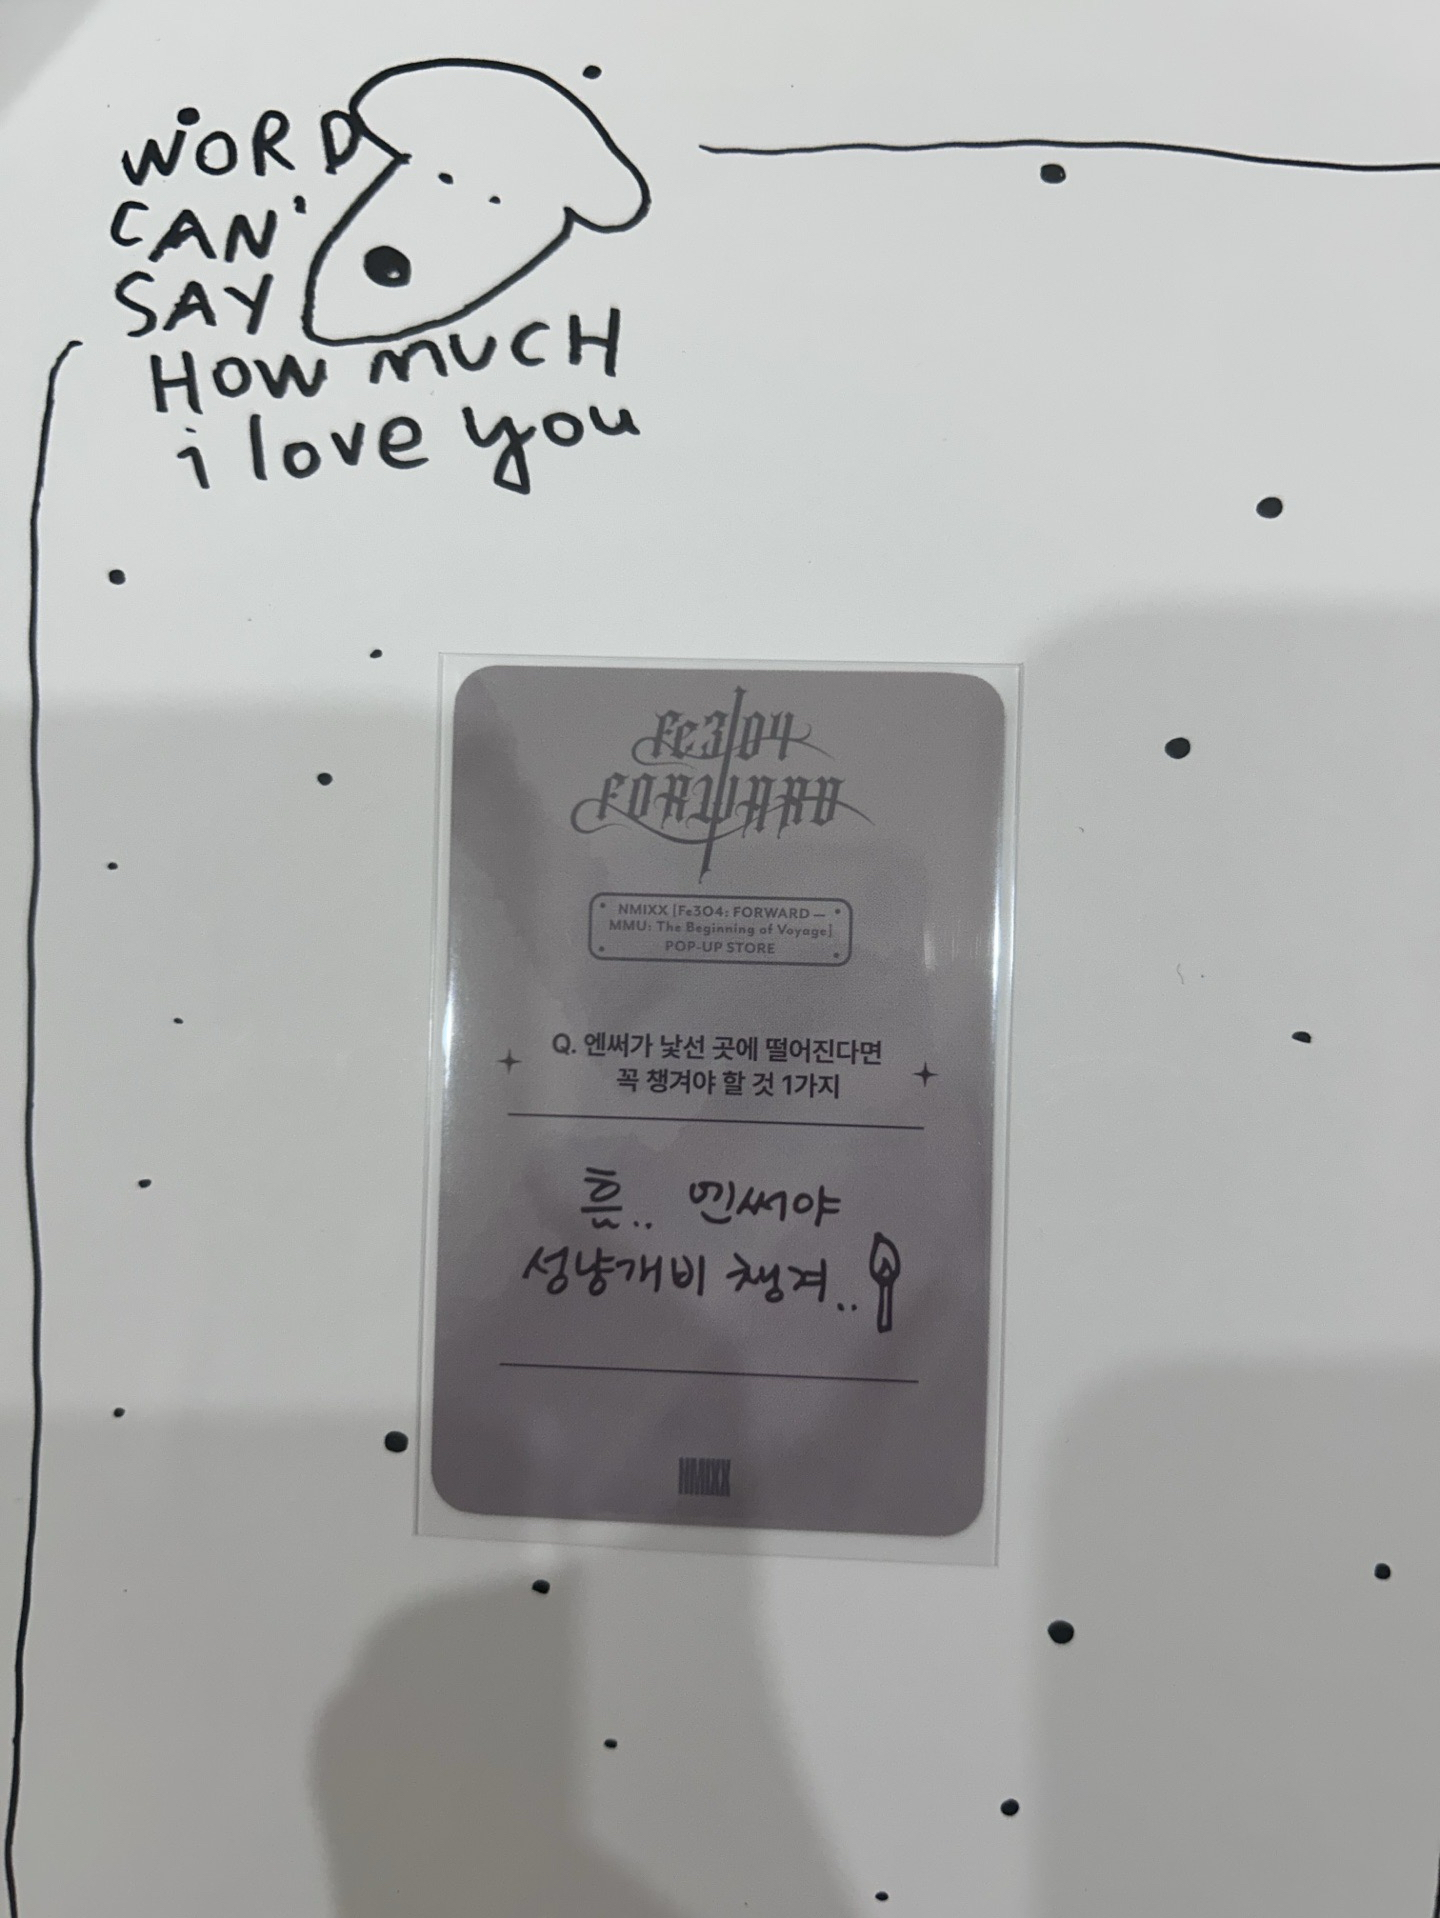 WORD
CAN'
SAY
HOW mUCH
i love you
Fe3O4
FORWARD
NMIXX [Fe3O4: FORWARD —
MMU: The Beginning of Voyage]
POP-UP STORE
Q. 엔써가 낯선 곳에 떨어진다면
꼭 챙겨야 할 것 1가지
흠.. 엔써야
성냥개비 챙겨..
NMIXX